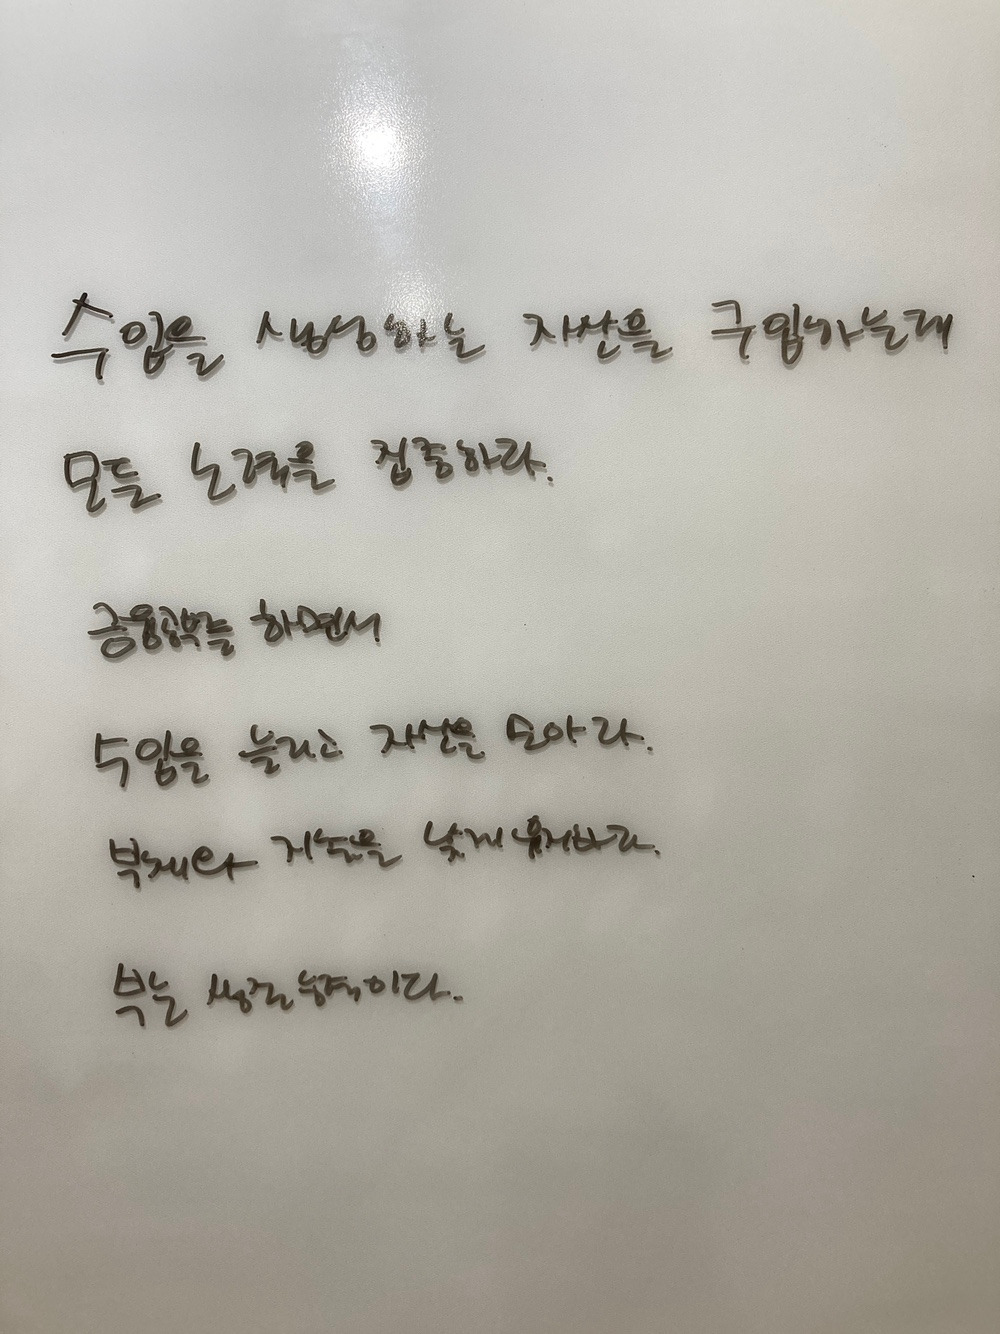 수입을 생성하는 자산을 구입하는데
모든 노력을 집중하라.
금융공부를 하면서
수입을 늘리고 자산을 모아라.
부채와 지출을 낮게 유지하라.
부는 생존능력이다.